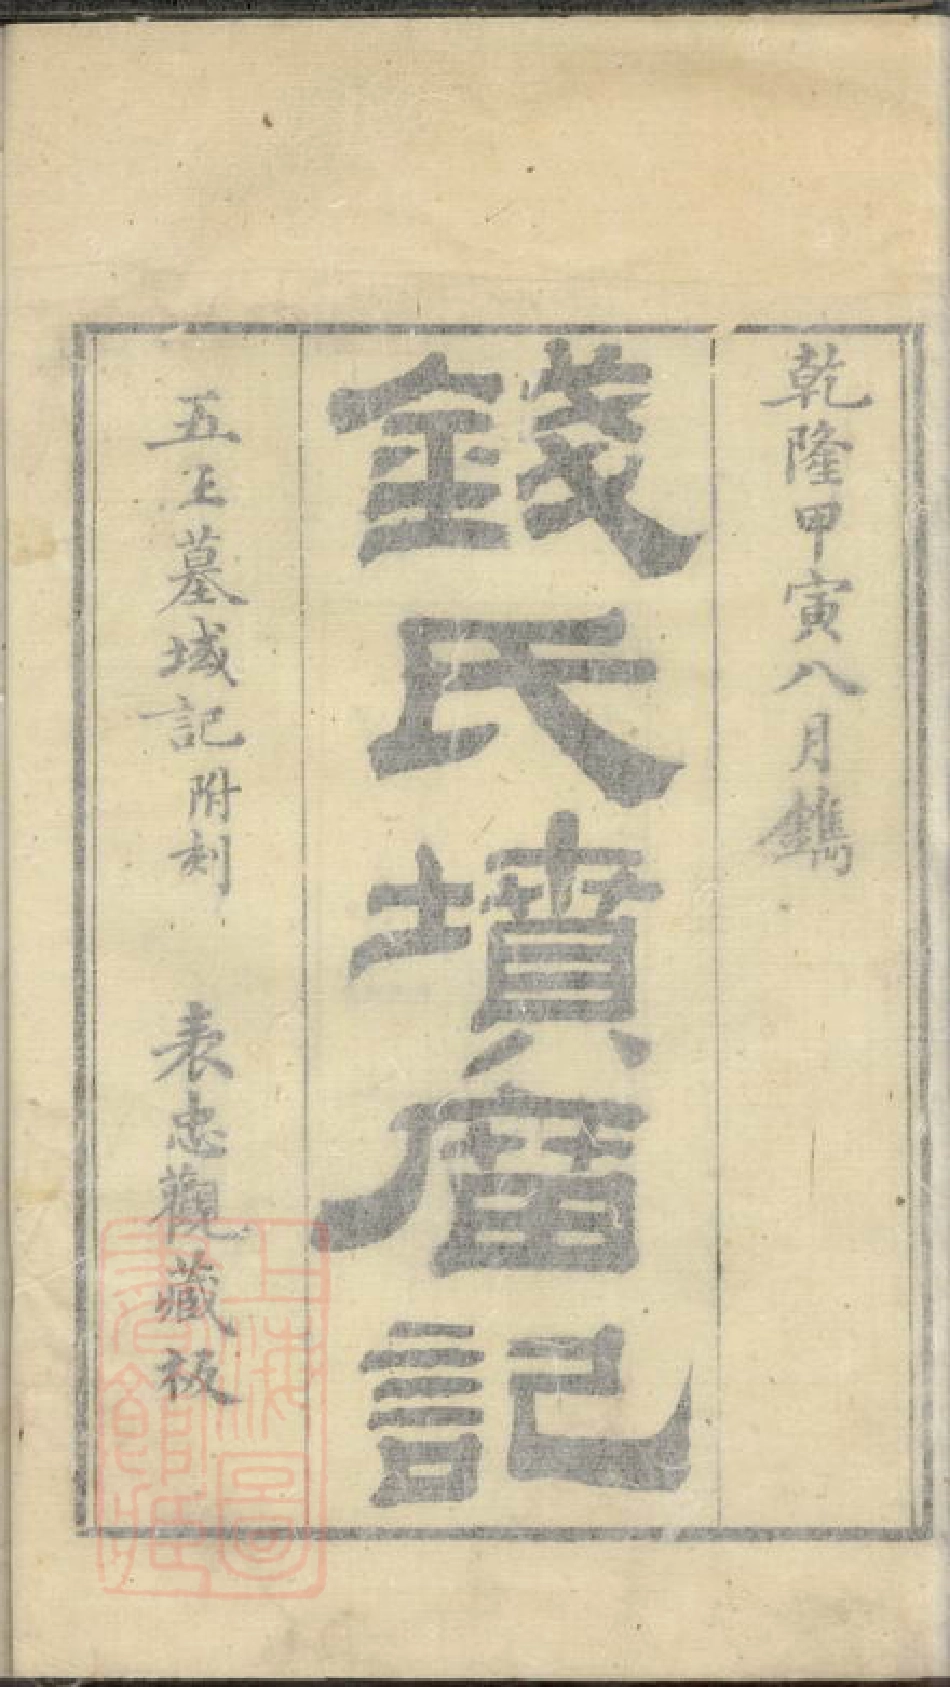 乾隆甲寅八月鐫
錢氏墳庿記
五王墓域記附刻 表忠觀藏板
上海圖
書館藏